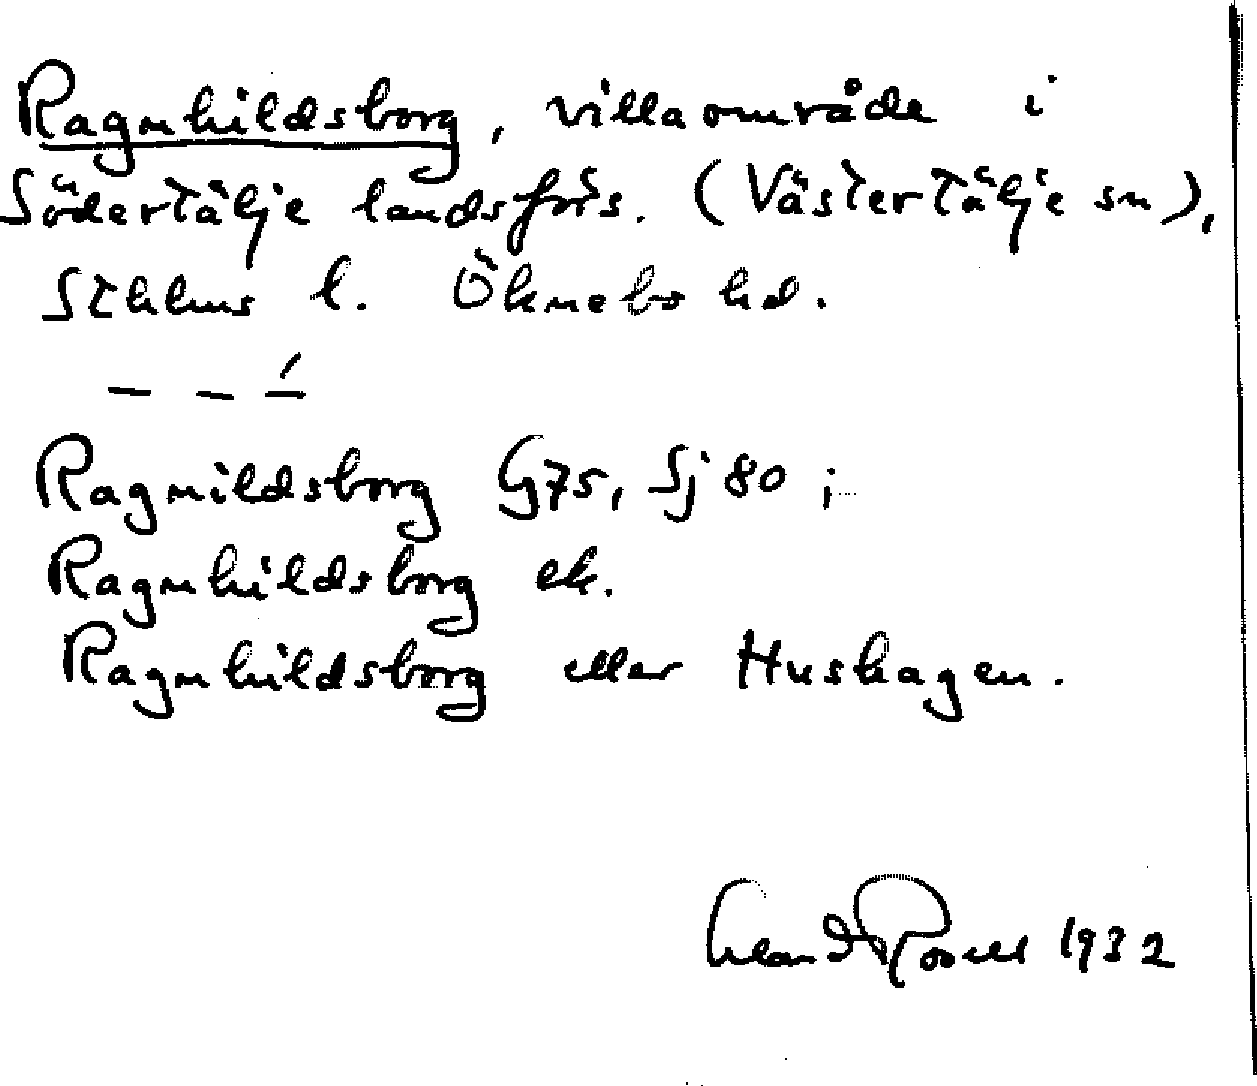 Ragnhildsborg, villaområde i
Södertälje landsförs. (Västertälje sn),
Sthlms l. Öknebo hd.
— — ー́
Ragnildsborg G75, Sj 80;
Ragnhildsborg ek.
Ragnhildsborg eller Hushagen.
1932